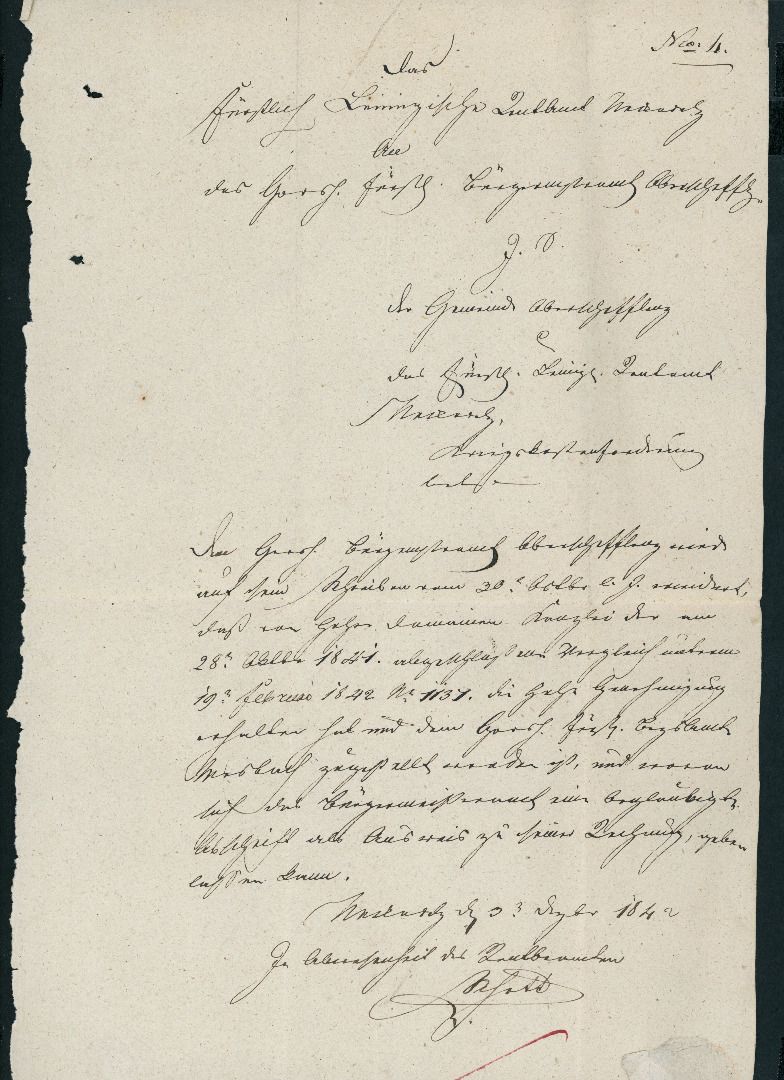 Nro: 4.
Das
Fürstlich Leiningische Rentamt Neckarelz
An
das Grosh. Fürstl. Bürgermstramt Oberschefflz.
J. S.
der Gemeinde Oberschefflenz
das Fürstl. Leining. Rentamt
Neckarelz,
Kriegskostenforderung
betr
Dem Grosh. Bürgermstramt Oberschefflenz wird
auf sein Schreiben vom 30n Octbr l. J. erwidert,
daß von Hoher Domainen Kanzlei der am
28n Octbr 1841. abgeschlossene Vergleich unterm
19n Februar 1842 Nr 1137. die Hohe Genehmigung
erhalten hat und dem Grosh. Fürstl. Bezirksamt
Mosbach zugestellt worden ist, und wovon
sich das Bürgermeisteramt eine beglaubigte
Abschrift als Ausweis zu seiner Rechnung, geben
lassen kann.
Neckarelz d. 3 Dezbr 1842
In Abwesenheit des Rentbeamten